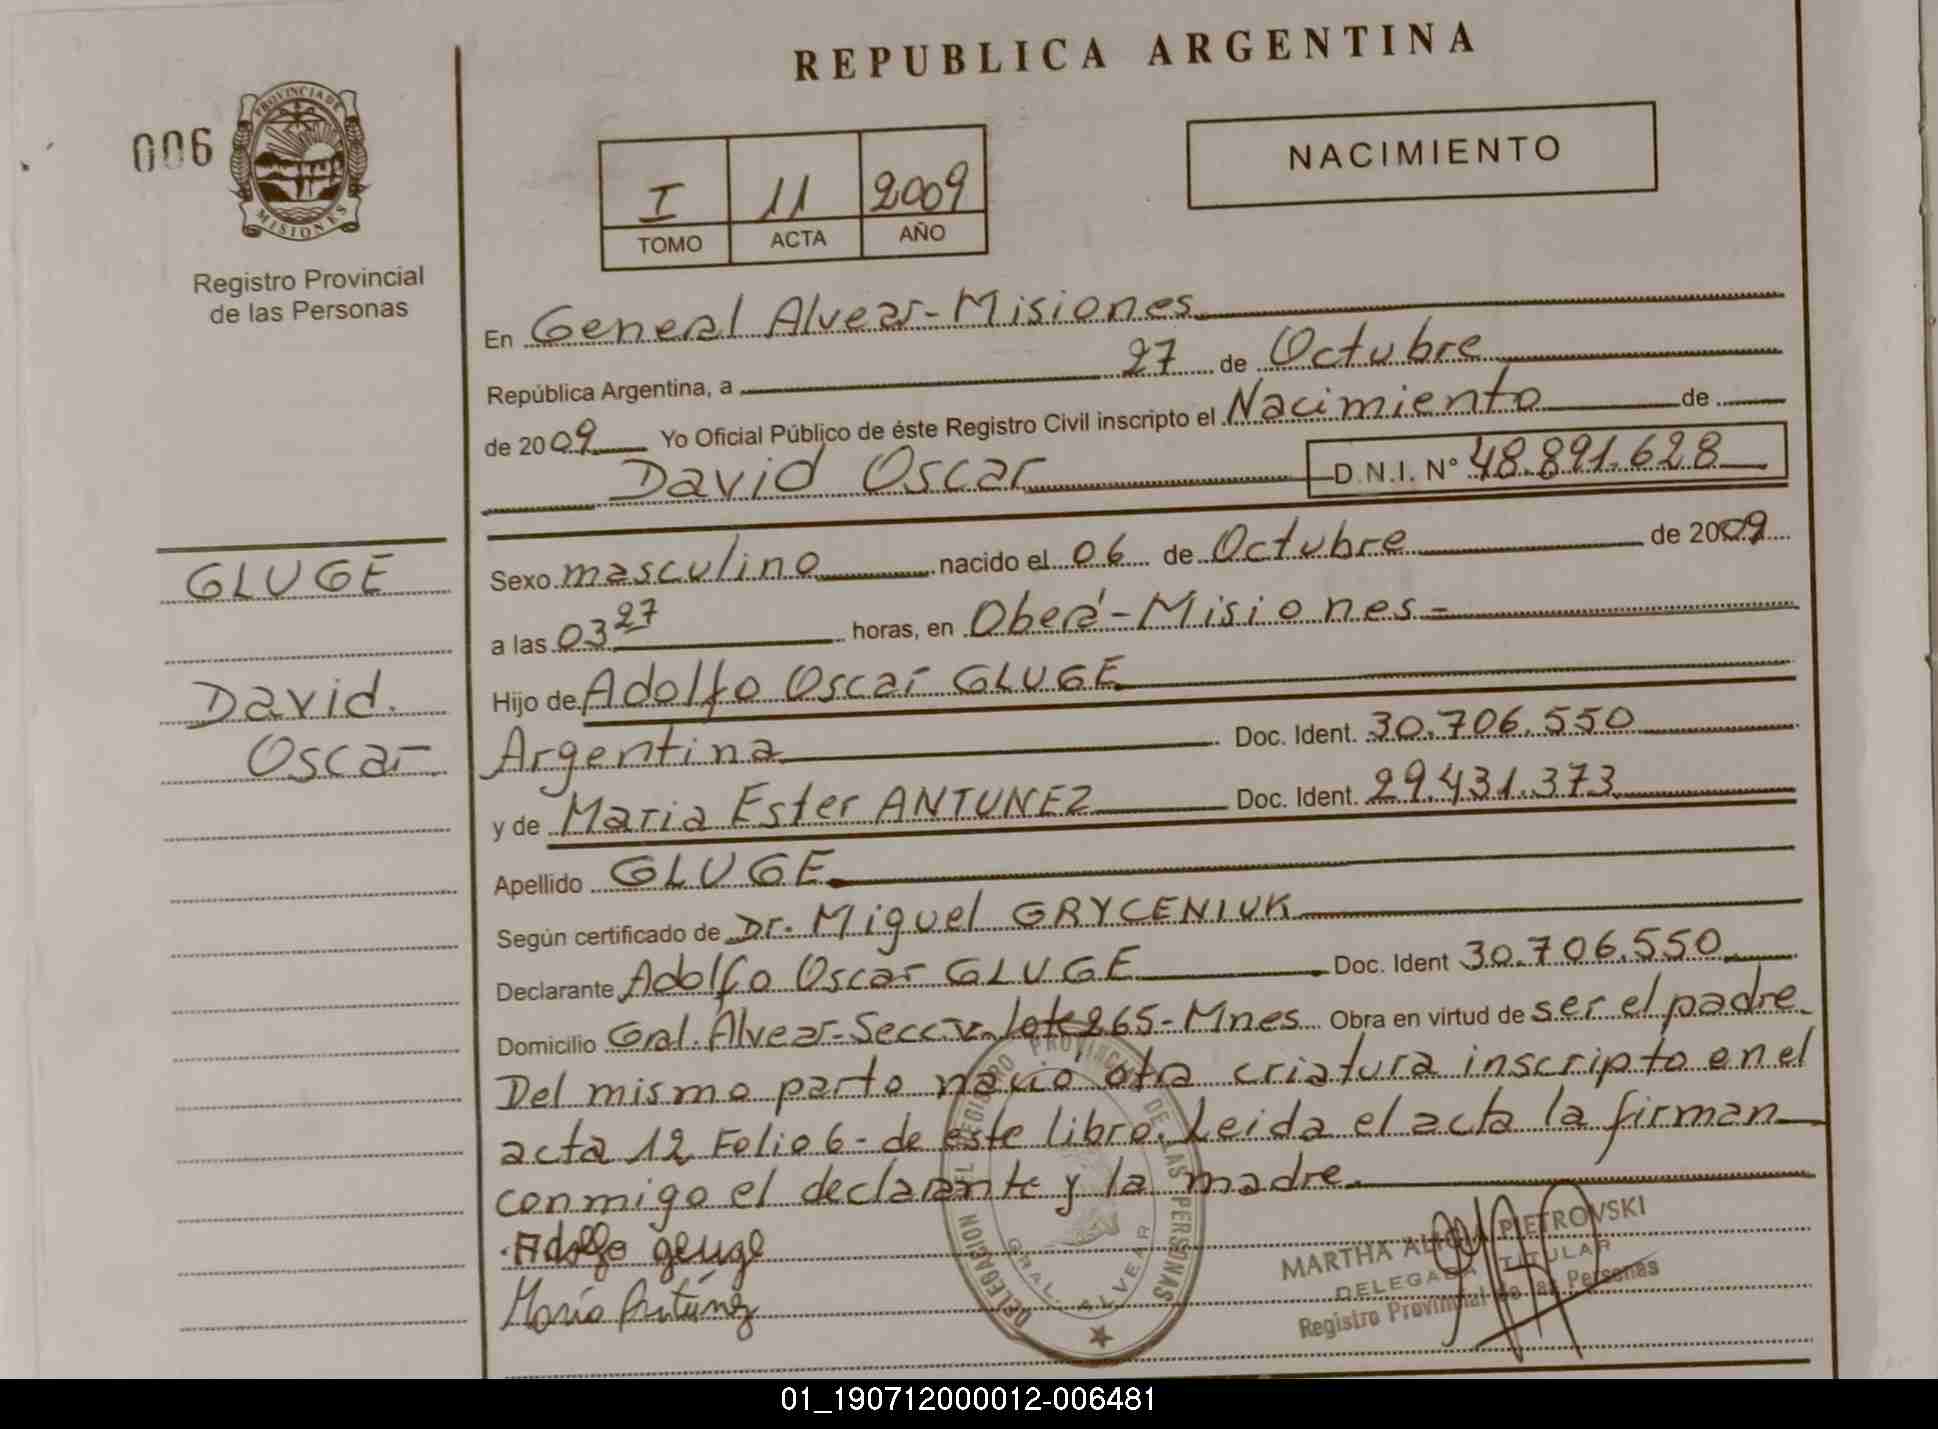 REPUBLICA ARGENTINA
006
PROVINCIA DE
MISIONES
Registro Provincial
de las Personas
NACIMIENTO
I 11 2009
TOMO ACTA AÑO
En General Alvear-Misiones
República Argentina, a 27 de Octubre
de 2009 Yo Oficial Público de éste Registro Civil inscripto el Nacimiento de
David Oscar D.N.I. N° 48.891.628
GLUGE
David
Oscar
Sexo masculino nacido el 06 de Octubre de 2009
a las 03 27 horas, en Oberá-Misiones-
Hijo de Adolfo Oscar GLUGE
Argentina Doc. Ident. 30.706.550
y de Maria Ester ANTUNEZ Doc. Ident. 29.431.373
Apellido GLUGE
Según certificado de Dr. Miguel GRYCENIUK
Declarante Adolfo Oscar GLUGE Doc. Ident 30.706.550
Domicilio Gral. Alvear-Secc. lote 265-Mnes Obra en virtud de ser el padre.
Del mismo parto nacio otra criatura inscripto en el
acta 12 Folio 6- de este libro. Leida el acta la firman
conmigo el declarante y la madre.
Adolfo gluge
María Antúnez
DELEGACION EL REGISTRO PROVINCIAL DE LAS PERSONAS
GRAL. ALVEAR
MARTHA PIETROVSKI
DELEGADA TITULAR
Registro Provincial de las Personas
01_190712000012-006481